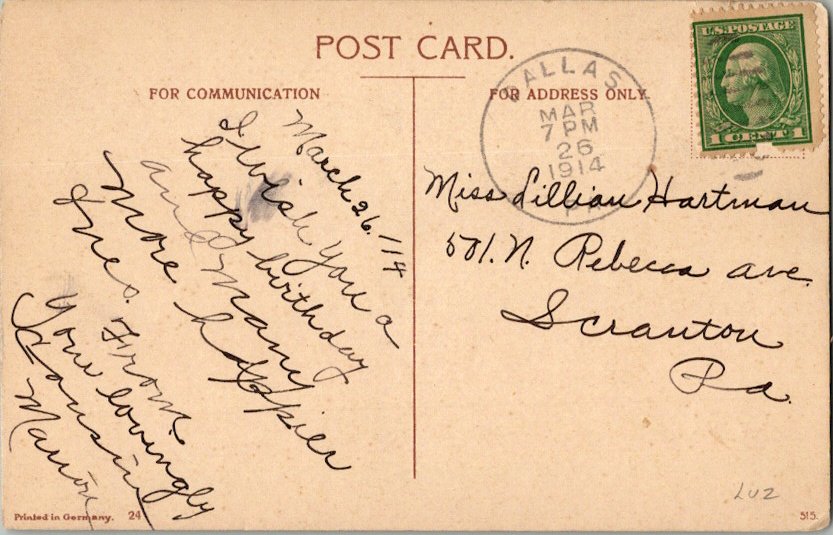 POST CARD.
FOR COMMUNICATION
FOR ADDRESS ONLY.
U.S. POSTAGE
1 CENT 1
DALLAS
MAR
7 PM
26
1914
PA
March 26. /14
I wish you a
happy birthday
and many
more happier
ones. From
Your lovingly
Cousin
Marion
Miss Lillian Hartman
501. N. Rebecca ave.
Scranton
Pa.
LUZ
Printed in Germany. 24
515.